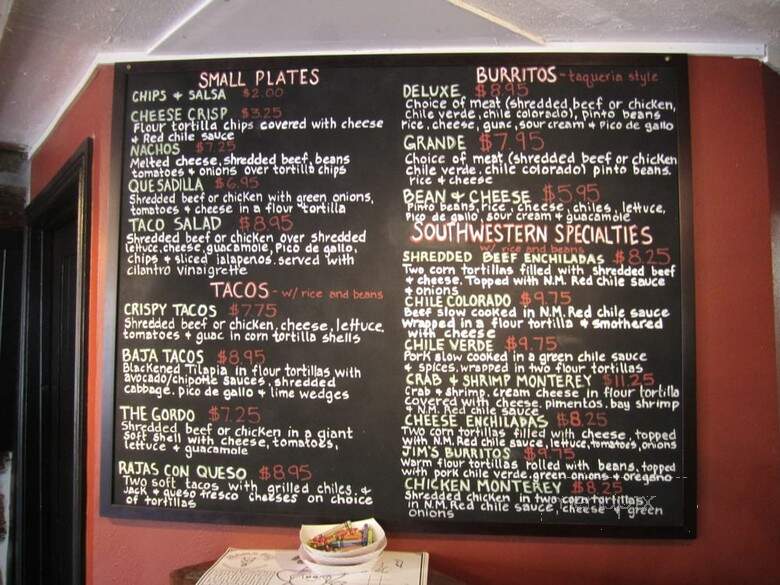 SMALL PLATES
CHIPS & SALSA $2.00
CHEESE CRISP $3.25
Flour tortilla chips covered with cheese
& Red chile sauce
NACHOS $7.25
Melted cheese, shredded beef, beans
tomatoes & onions over tortilla chips
QUESADILLA $6.95
Shredded beef or chicken with green onions,
tomatoes & cheese in a flour tortilla
TACO SALAD $8.95
Shredded beef or chicken over shredded
lettuce, cheese, guacamole, Pico de gallo,
chips & sliced jalapenos. served with
cilantro vinaigrette
TACOS - w/ rice and beans
CRISPY TACOS $7.75
Shredded beef or chicken, cheese, lettuce,
tomatoes & guac in corn tortilla shells
BAJA TACOS $8.95
Blackened Tilapia in flour tortillas with
avocado/chipotle sauces, shredded
cabbage, pico de gallo & lime wedges
THE GORDO $7.25
Shredded beef or chicken in a giant
Soft shell with cheese, tomatoes,
lettuce & guacamole
RAJAS CON QUESO $8.95
Two soft tacos with grilled chiles, &
Jack & queso fresco cheeses on choice
of tortillas
BURRITOS - taqueria style
DELUXE $8.95
Choice of meat (shredded beef or chicken,
chile verde, chile colorado), pinto beans
rice, cheese, guac, sour cream & Pico de gallo
GRANDE $7.95
Choice of meat (shredded beef or chicken
chile verde, chile colorado) pinto beans.
rice & cheese
BEAN & CHEESE $5.95
Pinto beans, rice, cheese, chiles, lettuce,
Pico de gallo, sour cream & guacamole
SOUTHWESTERN SPECIALTIES
w/ rice and beans
SHREDDED BEEF ENCHILADAS $8.25
Two corn tortillas filled with shredded beef
& cheese, Topped with N.M. Red chile sauce
& onions
CHILE COLORADO $9.75
Beef slow cooked in N.M. Red chile sauce
wrapped in a flour tortilla & smothered
with cheese
CHILE VERDE $9.75
Pork slow cooked in a green chile sauce
& spices, wrapped in two flour tortillas
CRAB & SHRIMP MONTEREY $11.25
Crab & shrimp, cream cheese in flour tortilla
covered with cheese, pimentos, bay shrimp
& N.M. Red chile sauce
CHEESE ENCHILADAS $8.25
Two corn tortillas filled with cheese, topped
with N.M. Red chile sauce, lettuce, tomatoes, onions
JIM'S BURRITOS $9.75
Warm flour tortillas rolled with beans, topped
with pork chile verde, green onions & oregano
CHICKEN MONTEREY $8.25
Shredded chicken in two corn tortillas
in N.M. Red chile sauce, cheese & green
onions